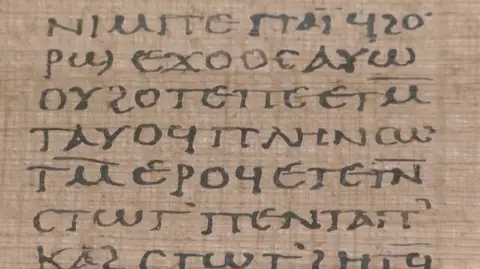 ⲛⲓⲙⲡⲉ ⲡⲁⲓ̈ ϥϩⲟ
ⲣϣ ⲉϫⲟⲟⲥ ⲁⲩⲱ
ⲟⲩϩⲟⲧⲉⲡⲉ ⲉⲧⲙ̅
ⲧⲁⲩⲟϥ ⲡⲗⲏⲛ ⲥⲱ
ⲧⲙ̅ ⲉⲣⲟϥ ⲉⲧⲉⲧⲛ̅
ⲥⲧⲱⲧ’ ⲡⲉⲛⲧⲁⲡ’
ⲕⲁϩ ⲥⲧⲱⲧ’ ϩⲏⲧϥ̅